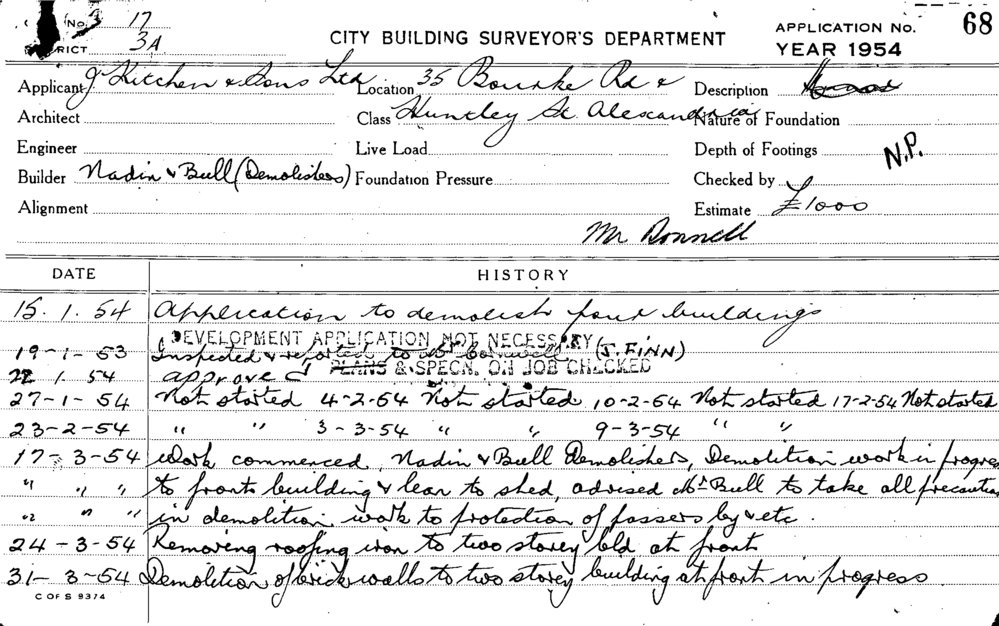 No. 3 17
3A
CITY BUILDING SURVEYOR'S DEPARTMENT
APPLICATION No. 68
YEAR 1954
Applicant J Kitchen & Sons Ltd Location 35 Bourke Rd & Description
Architect Class Huntley St Alexandria Nature of Foundation
Engineer Live Load Depth of Footings N.P.
Builder Nadin & Bull (Demolishers) Foundation Pressure Checked by
Alignment Estimate £1000
Mr Bonnell
DATE HISTORY
15. 1. 54 Application to demolish four buildings
DEVELOPMENT APPLICATION NOT NECESSARY
19-1-53 Inspected & reported to Mr (J. FINN)
22 1. 54 approved PLANS & SPECN. ON JOB CHECKED
27-1-54 Not started 4-2-54 Not started 10-2-54 Not started 17-2-54 Not started
23-2-54 " " 3-3-54 " " 9-3-54 " "
17-3-54 Work commenced, Nadin & Bull Demolishers, Demolition work in progress
" " " to front building & lean to shed, advised Mr Bull to take all precaution
" " " in demolition work to protection of passers by & etc.
24-3-54 Removing roofing iron to two storey bld at front
31-3-54 Demolition of brick walls to two storey building at front in progress.
C OF S 9374